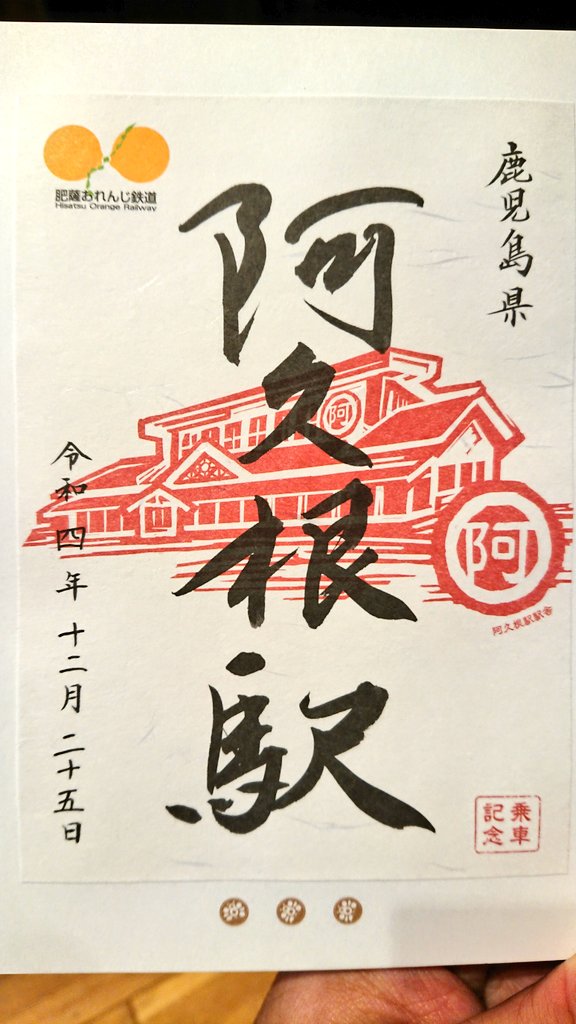 肥薩おれんじ鉄道
Hisatsu Orange Railway
鹿児島県
阿久根駅
阿
阿
阿久根駅駅舎
令和四年十二月二十五日
乗車
記念